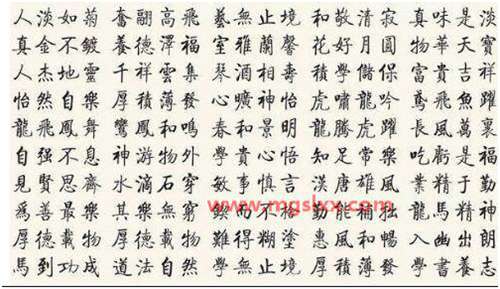 人淡如菊 奮翮高飛 藝無止境 和敬清寂 真味是淡
真金不鍍 養德澤福 室雅蘭馨 花好月圓 物華天寶
人杰地靈 千祥雲集 琴酒相壽 積學儲保 富貴吉祥
怡然自樂 厚積薄發 心曠神怡 虎嘯龍吟 鳶飛魚躍
龍飛鳳舞 鸞鳳和鳴 春和景明 龍騰虎躍 長風萬裏
自强不息 神游物外 學貴心悟 知足常樂 吃虧是福
見賢思齊 水滴石穿 敏事慎言 漢唐雄風 業精于勤
爲善最樂 其樂無窮 而不 勤能補拙 龍馬精神
厚德載物 厚德載福 難得糊塗 惠風和暢 入幽出朗
馬到功成 道法自然 學無止境 厚積薄發 學書養志